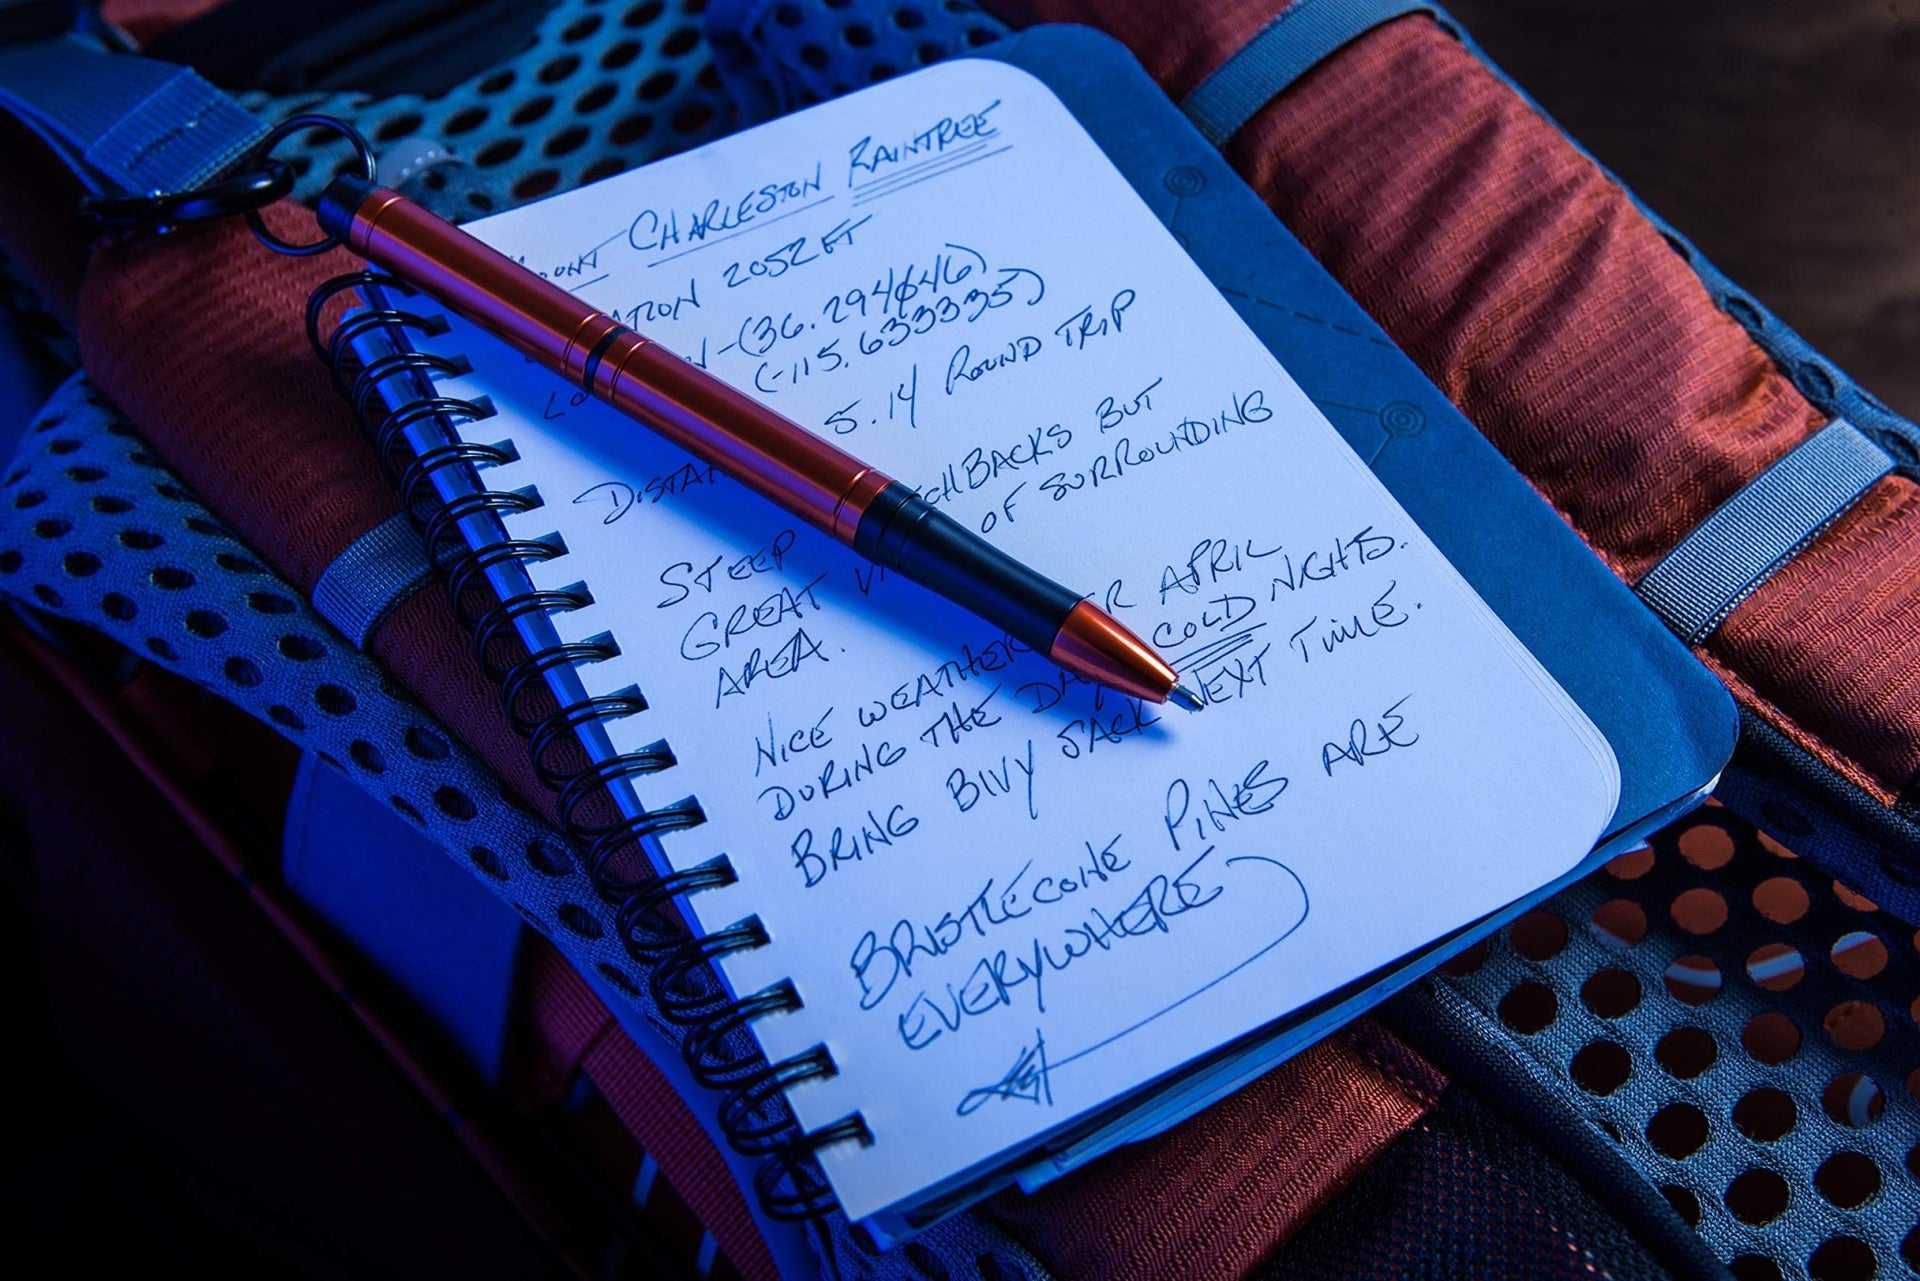 MOUNT CHARLESTON RAINTREE
ATION 2052 FT
N-(36.294646)
(-115.633335)
5.14 ROUND TRIP
STEEP CHBACKS BUT
GREAT OF SURROUNDING
AREA.
NICE WEATHER APRIL
DURING THE COLD NIGHTS.
BRING BIVY SACK NEXT TIME.
BRISTLECONE PINES ARE
EVERYWHERE